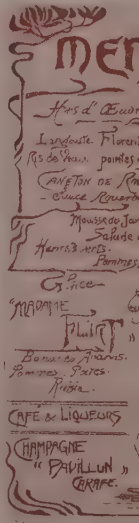 MEN
Hors d' Œuvr
Langouste. Floren
Ris de Veau pointes
CANETON DE RO
Sauce Rouenn
Mousseux Jam
Salade
Pommes
Glace
"MADAME
FLIRT"
Bananes Ananas.
Pommes. Poires.
Raisin.
CAFÉ & LIQUEURS
CHAMPAGNE
" PAVILLON "
CARAFE.